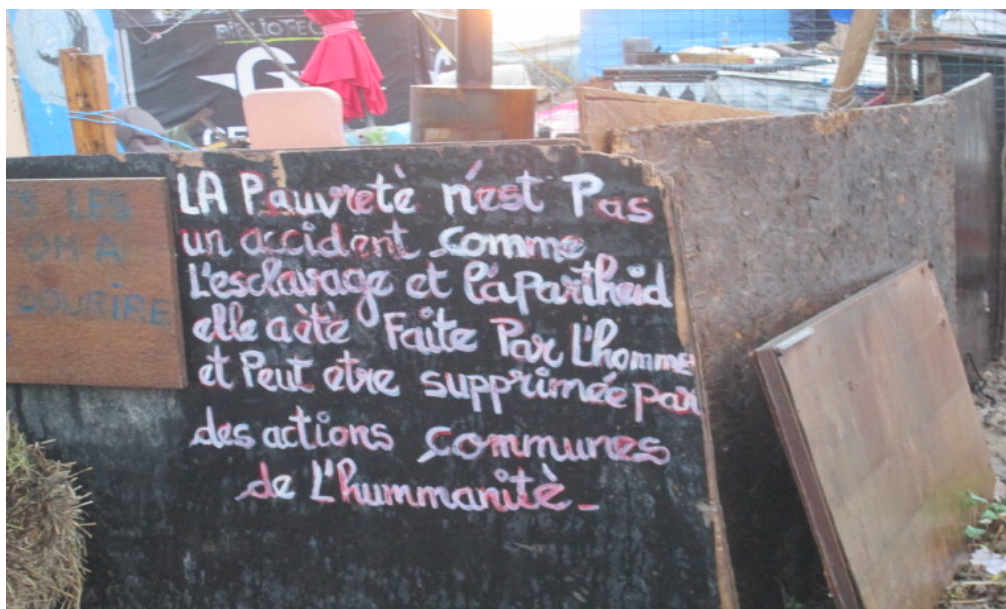 BIBLIOTEC
G
LA Pauvretè n'est Pas
un accident comme
L'esclavage et l'apartheid
elle a ètè Faite Par L'homme
et Peut etre supprimée par
des actions communes
de L'hummanitè_
LES
SOURIRE